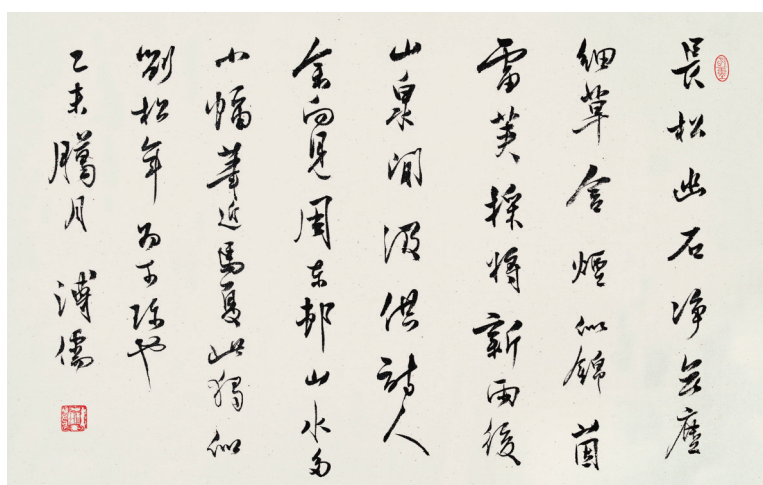 長松幽石净無塵
細草含煙似錦茵
雷莢採將新雨後
山泉閒汲供詩人
余所見周東邨山水多
小幅筆近馬夏此獨似
劉松年為可珍也
乙未臘月 溥儒